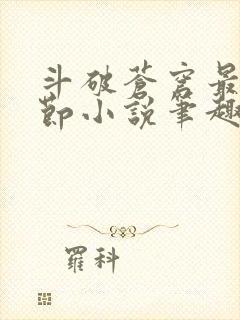 斗破蒼穹最
節小說筆趣
羅科